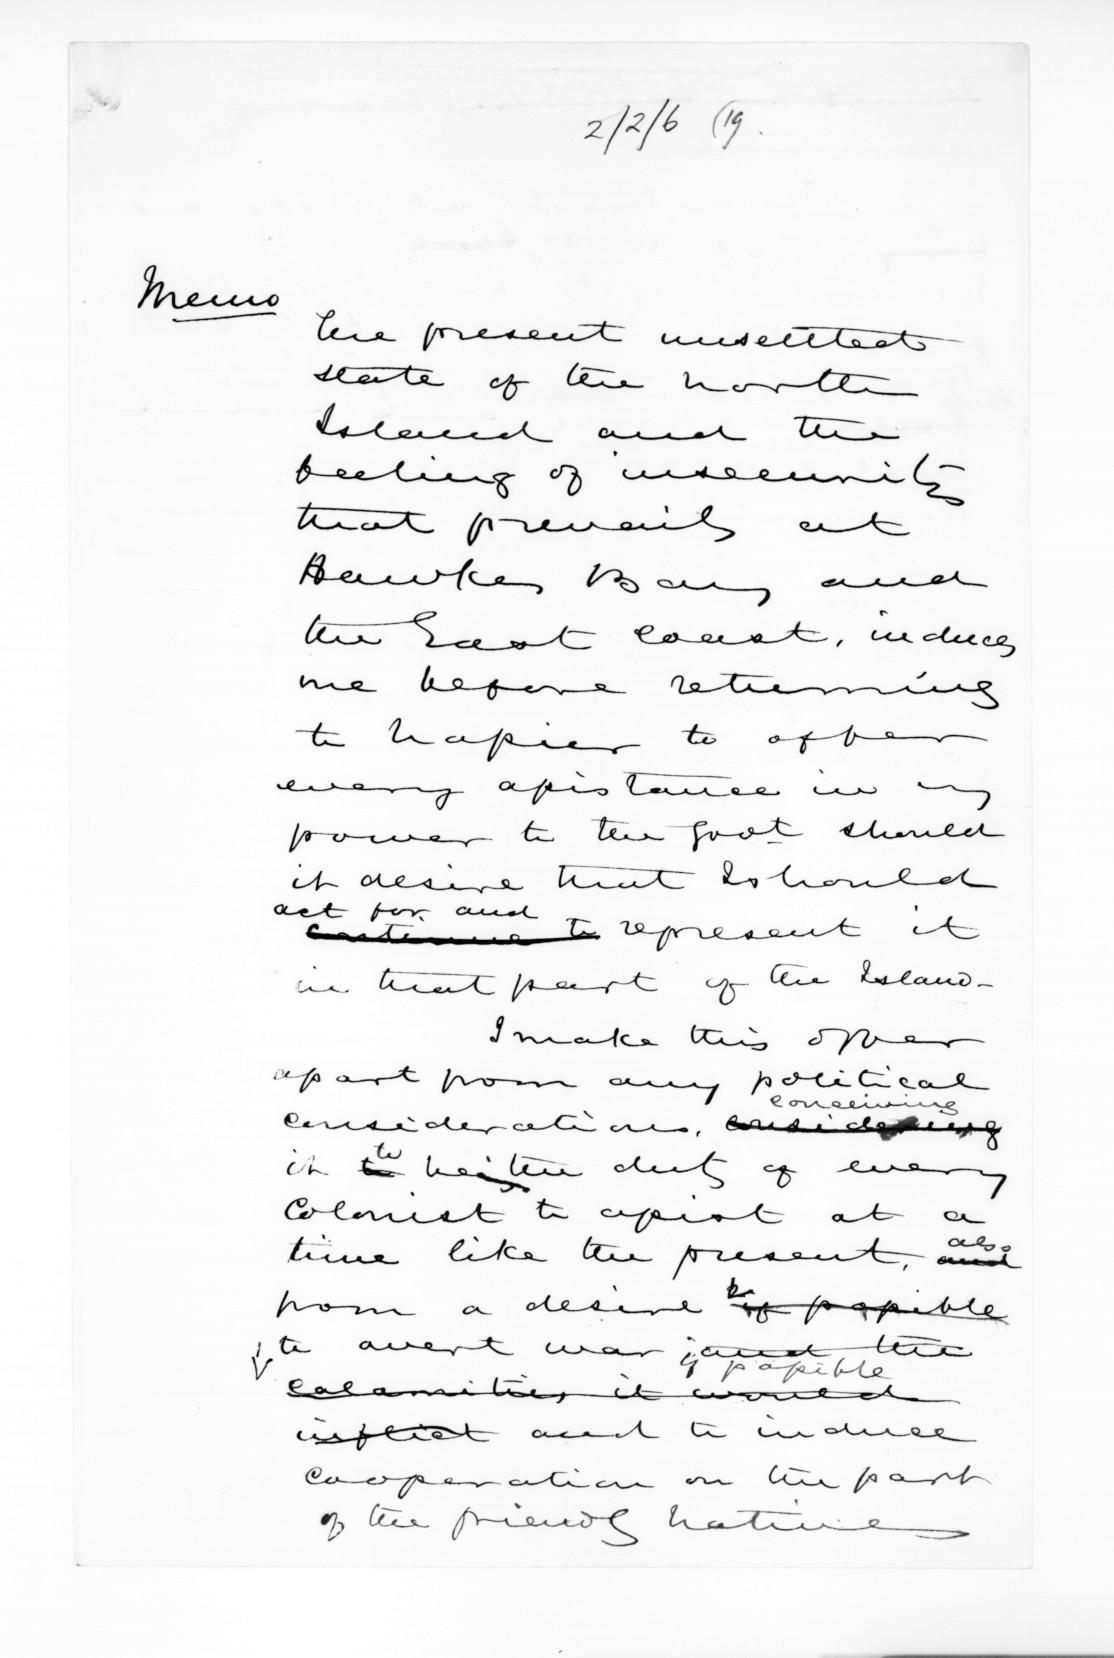 2/2/6 (19.
Memo
The present unsettled
state of the North
Island and the
feeling of insecurity
that prevails at
Hawkes Bay and
the East Coast, induces
me before returning
to Napier to offer
every assistance in my
power to the Govt should
it desire that I should
act for and
continue to represent it
in that part of the Island-
I make this offer
apart from any political
conceiving
considerations, considering
it to to being the duty of every
Colonist to assist at a
also
time like the present, and
from a desire if possible
to avert war if and the
possible
calamities it would
inflict and to induce
cooperation on the part
of the friendly Natives